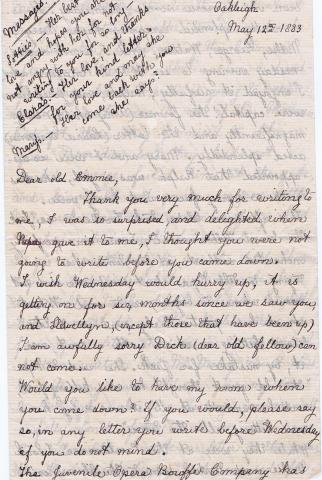 Messages
Lottie's — Her best
love and hopes you are
not angry with her for not
writing to you for so long—
Clara's: Her love and thanks
for your kind letter.
Mary's.— Her love and may she
come back with you
she says?
Oakleigh.
May 12th 1883
Dear old Emmie,
Thank you very much for writing to
me, I was so surprised and delighted when
Papa gave it to me, I thought you were not
going to write before you came down.
I wish Wednesday would hurry up, it is
getting on for six months since we saw you
and Llewellyn, (except those that have been up)
I am awfully sorry Dick (dear old fellow) can
not come.
Would you like to have my room when
you come down? If you would, please say
so, in any letter you write before Wednesday
if you do not mind.
The Juvenile Opera Bouffe Company has